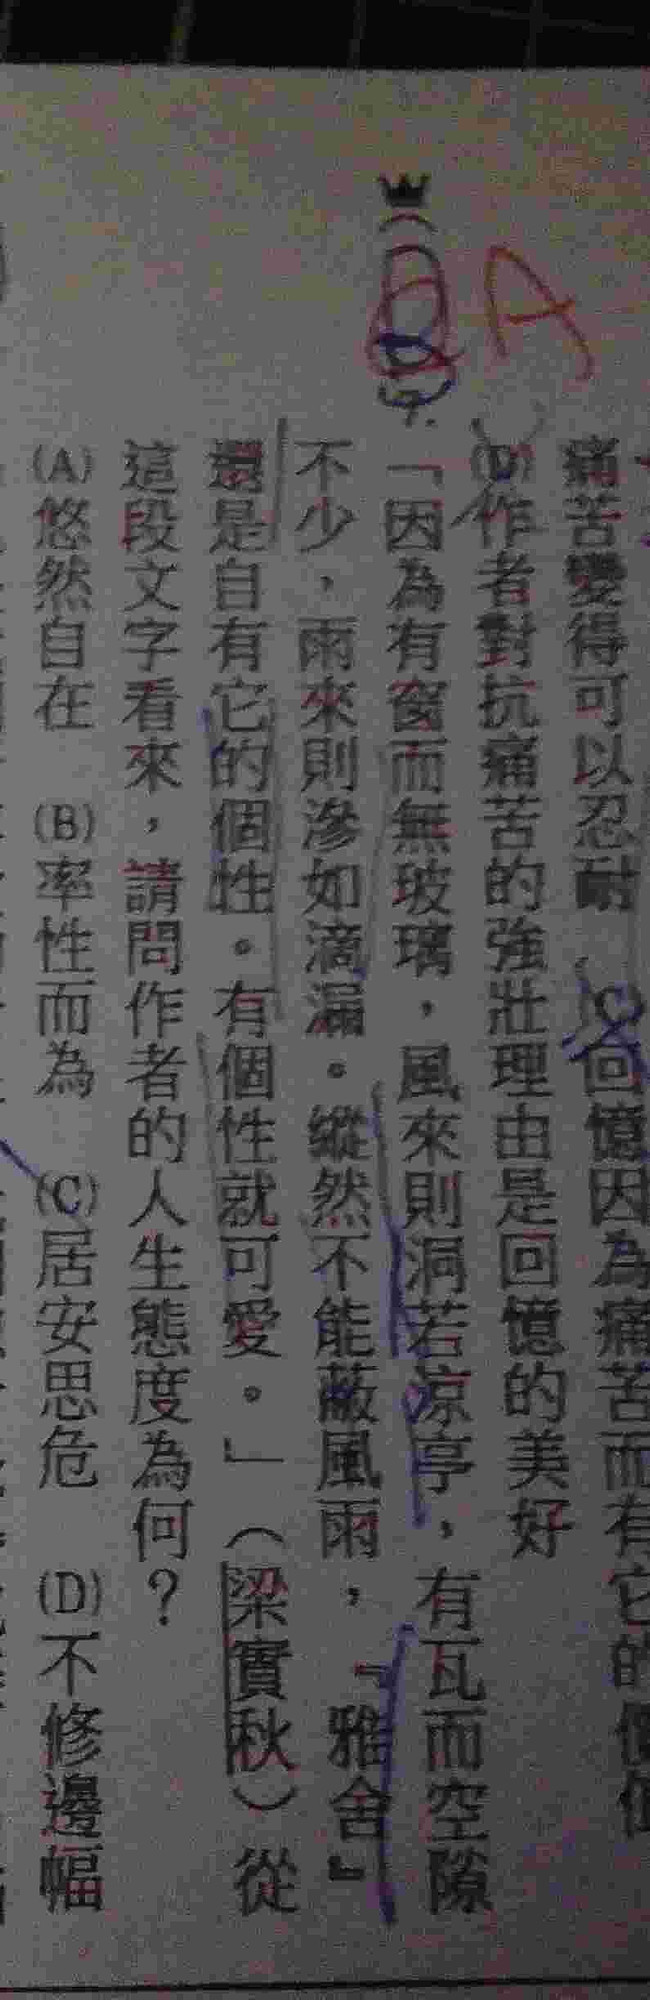 痛苦變得可以忍耐 (C)回憶因為痛苦而有它的價值
(D)作者對抗痛苦的強壯理由是回憶的美好
A
7.
「因為有窗而無玻璃，風來則洞若涼亭，有瓦而空隙
不少，雨來則滲如滴漏。縱然不能蔽風雨，『雅舍』
還是自有它的個性。有個性就可愛。」（梁實秋）從
這段文字看來，請問作者的人生態度為何？
(A)悠然自在 (B)率性而為 (C)居安思危 (D)不修邊幅